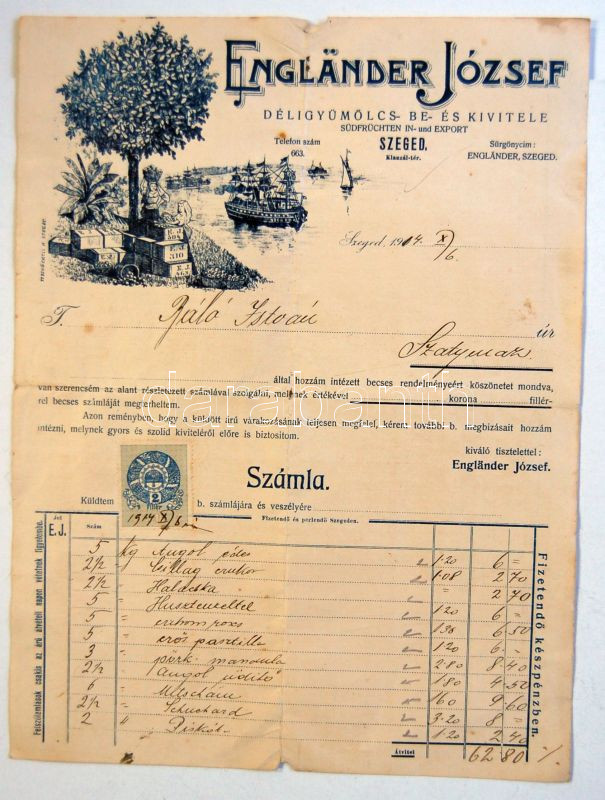 ENGLÄNDER JÓZSEF
DÉLIGYÜMÖLCS- BE- ÉS KIVITELE
SÜDFRÜCHTEN IN- und EXPORT
Telefon szám
663.
SZEGED,
Klauzál-tér.
Sürgönycim:
ENGLÄNDER, SZEGED.
E. J.
504
E. J.
310
E. J.
Szeged, 1914. X/6.
T. Páló István úr
Szatymaz
által hozzám intézett becses rendelményeért köszönetet mondva,
van szerencsém az alant részletezett számlával szolgálni, melynek értékével korona fillér-
rel becses számláját megterheltem.
Azon reményben, hogy a küldött árú várakozásának teljesen megfelel, kérem további b. megbizásait hozzám
intézni, melynek gyors és szolid kiviteléről előre is biztositom.
kiváló tisztelettel:
Engländer József.
Számla.
Küldtem b. számlájára és veszélyére
2
1914 X/6
Fizetendő és perlendő Szegeden.
Jel
E. J.
Szám
5 kg Angol édes 1·20 6 =
2½ " Csillag cukor 1·08 2 70
2½ " Halacska " 2 70
5 " 1·20 6 =
5 " 1·30 6 50
5 " erős pastilla 1·20 6 -
3 " pörk. mandula 2·80 8 40
2½ " Angol üditő 1·80 4 50
6 " 160 9 60
2½ " Suchard 3·20 8 =
2 " Piskót 1·20 2 40
Átvitel 62 80
Felszólamlások csakis az árú átvételi napon vétetnek figyelembe.
Fizetendő készpénzben.
darabanth